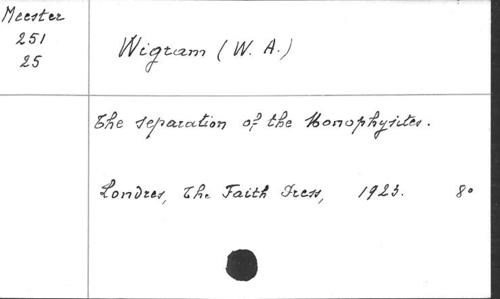 Meester
251
25
Wigram (W. A.)
The separation of the Monophysites.
Londres, The Faith Press, 1923. 8°